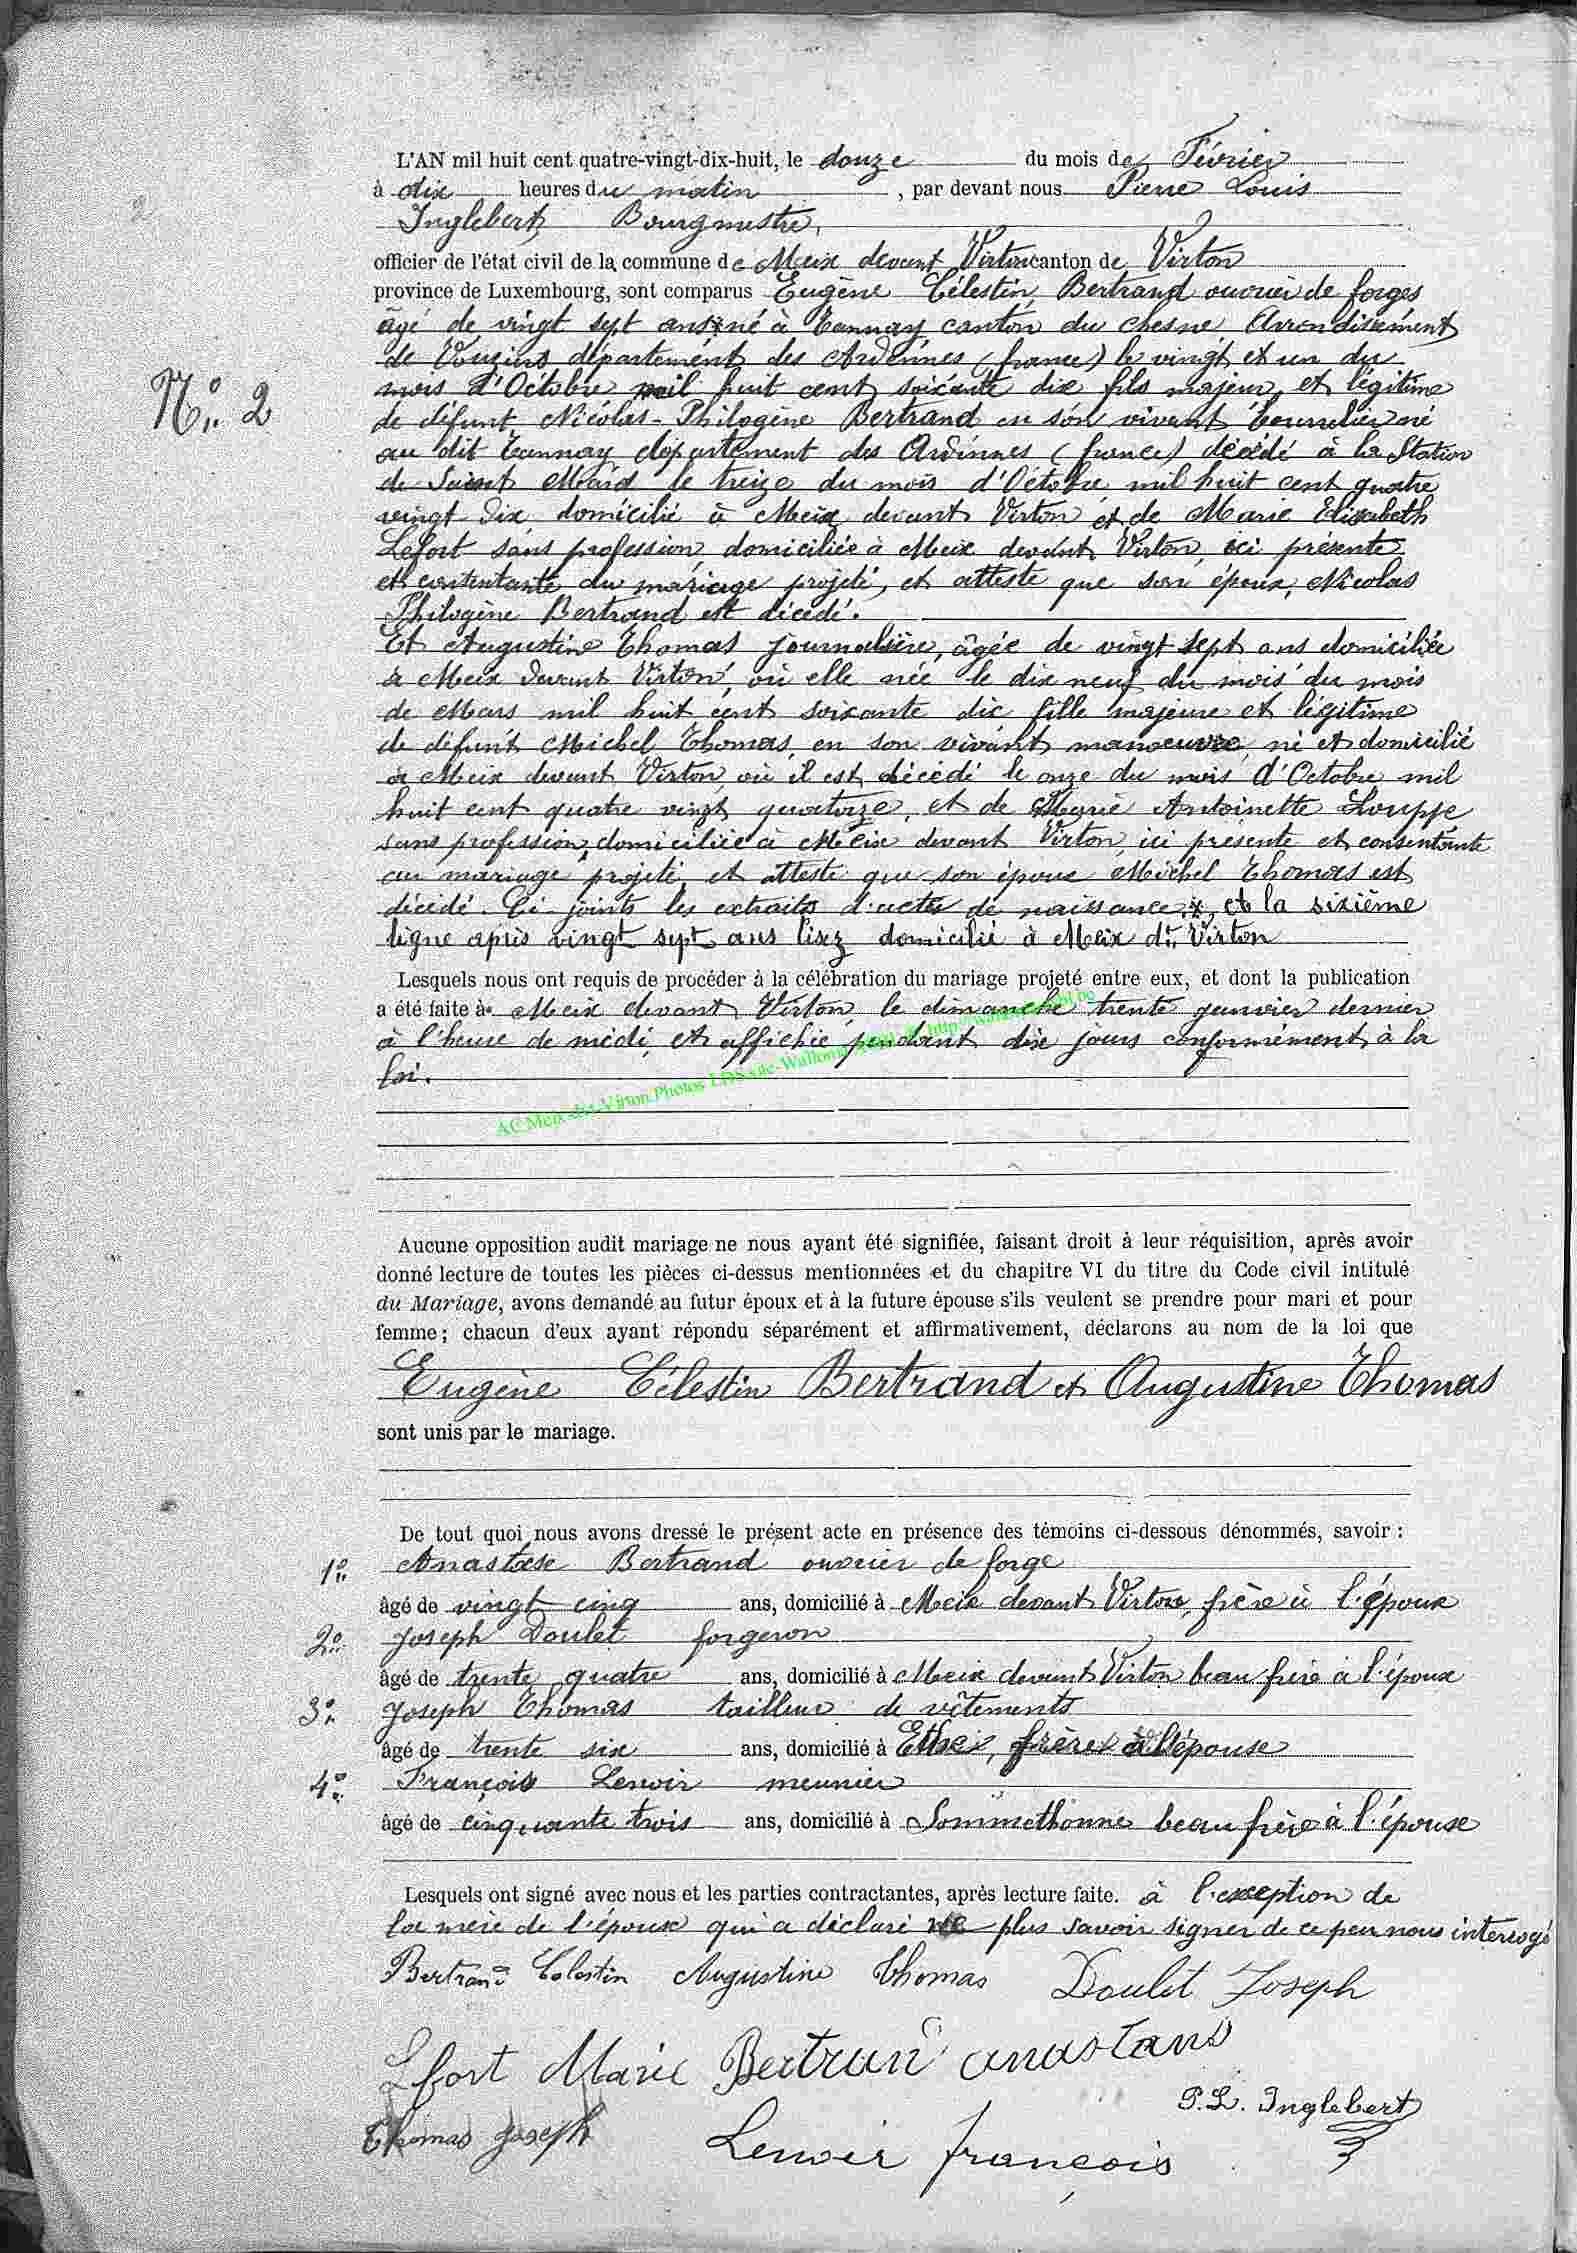 L'AN mil huit cent quatre-vingt-dix-huit, le douze du mois de Février
à dix heures du matin, par devant nous Pierre Louis
Inglebert Bourgmestre,
officier de l'état civil de la commune de Meix devant Virton canton de Virton
province de Luxembourg, sont comparus Eugène Célestin Bertrand ouvrier de forges
âgé de vingt sept ans x né à Tannay canton du chesne Arrondissement
de Vouziers département des Ardennes (france) le vingt et un du
mois d'Octobre mil huit cent soixante dix fils majeur et légitime
N° 2
de défunt Nicolas-Philogène Bertrand en son vivant bourrelier né
au dit Tannay département des Ardennes (france) décédé à la Station
de Saint Mard le treize du mois d'Octobre mil huit cent quatre
vingt dix domicilié à Meix devant Virton et de Marie Elisabeth
Lefort sans profession, domiciliée à Meix devant Virton, ici présente
et contentante au mariage projeté, et atteste que son époux, Nicolas
Philogène Bertrand est décédé.
Et Augustine Thomas journalière, âgée de vingt sept ans domiciliée
à Meix devant Virton, où elle née le dix neuf du mois du mois
de Mars mil huit cent soixante dix fille majeure et légitime
de défunt Michel Thomas, en son vivant manoeuvre, né et domicilié
à Meix devant Virton, où il est décédé le onze du mois d'Octobre mil
huit cent quatre vingt quatorze, et de Marie Antoinette Louppe
sans profession, domiciliée à Meix devant Virton, ici présente et consentante
au mariage projeté, et atteste que son époux Michel Thomas est
décédé. Ci-joints les extraits d'actes de naissance. x, et la sixième
ligne après vingt sept ans lisez domicilié à Meix dt Virton
Lesquels nous ont requis de procéder à la célébration du mariage projeté entre eux, et dont la publication
a été faite à Meix devant Virton, le dimanche trente janvier dernier
à l'heure de midi, et affichée pendant dix jours conformément à la
loi.
AC Meix-dvt-Virton Photos LDS
Aucune opposition audit mariage ne nous ayant été signifiée, faisant droit à leur réquisition, après avoir
donné lecture de toutes les pièces ci-dessus mentionnées et du chapitre VI du titre du Code civil intitulé
du Mariage, avons demandé au futur époux et à la future épouse s'ils veulent se prendre pour mari et pour
femme; chacun d'eux ayant répondu séparément et affirmativement, déclarons au nom de la loi que
Eugène Célestin Bertrand et Augustine Thomas
sont unis par le mariage.
De tout quoi nous avons dressé le présent acte en présence des témoins ci-dessous dénommés, savoir :
1° Anastase Bertrand ouvrier de forge
âgé de vingt cinq ans, domicilié à Meix devant Virton, frère à l'époux
2° Joseph Doulet forgeron
âgé de trente quatre ans, domicilié à Meix devant Virton beau frère à l'époux
3° Joseph Thomas tailleur de vêtements
âgé de trente six ans, domicilié à Ethe, frère à l'épouse
4° François Lenoir meunier
âgé de cinquante trois ans, domicilié à Sommethonne beau frère à l'épouse
Lesquels ont signé avec nous et les parties contractantes, après lecture faite. à l'exception de
la mère de l'épouse qui a déclaré ne plus savoir signer de ce par nous interrogé
Bertrand Célestin Augustine Thomas Doulet Joseph
Lfort Marie Bertrand anastans
P.L. Inglebert
Thomas Joseph Lenoir françois